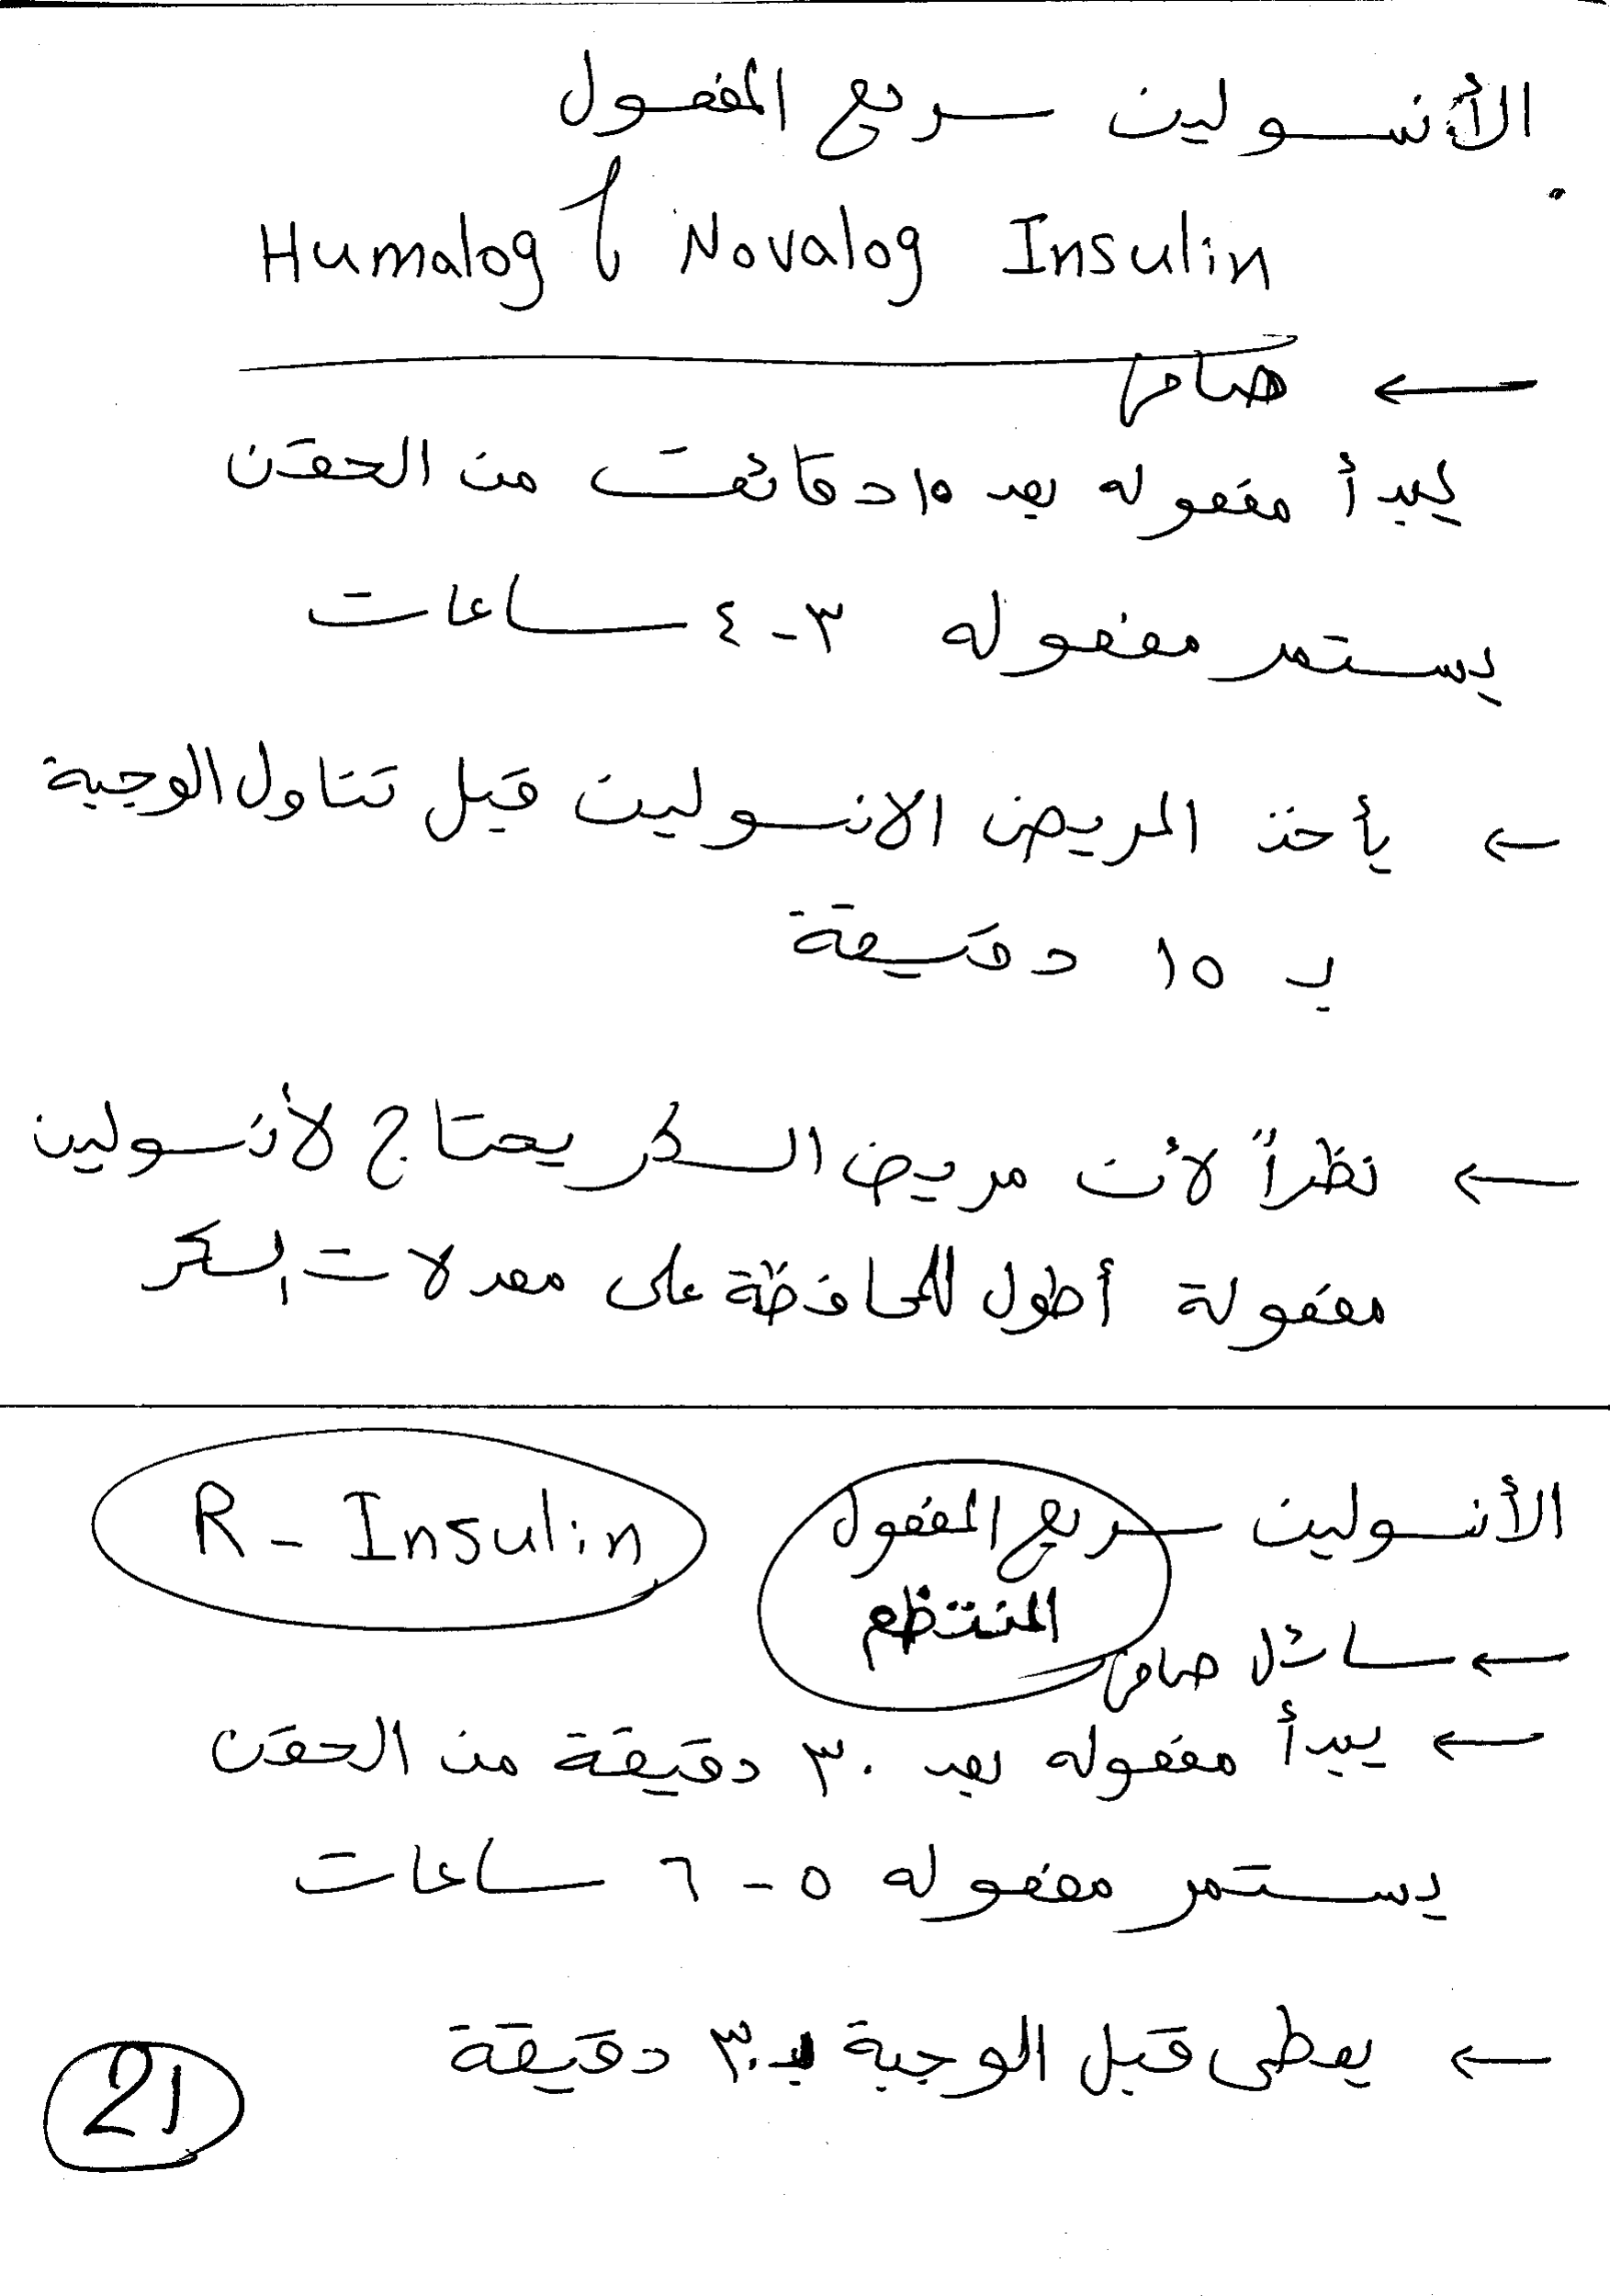 الأنسولين سريع المفعول
Humalog أ Novalog Insulin
← صافي
يبدأ مفعوله بعد ١٥ دقائق من الحقن
يستمر مفعوله ٣-٤ ساعات
← يأخذ المريض الانسولين قبل تناول الوجبة
بـ ١٥ دقيقة
← نظراً لأن مريض السكر يحتاج لأنسولين
مفعولة أطول للمحافظة على معدلات السكر
الأنسولين سريع المفعول R - Insulin
المنتظم
← سائل صافي
← يبدأ مفعوله بعد ٣٠ دقيقة من الحقن
يستمر مفعوله ٥-٦ ساعات
← يعطى قبل الوجبة بـ ٣٠ دقيقة
21